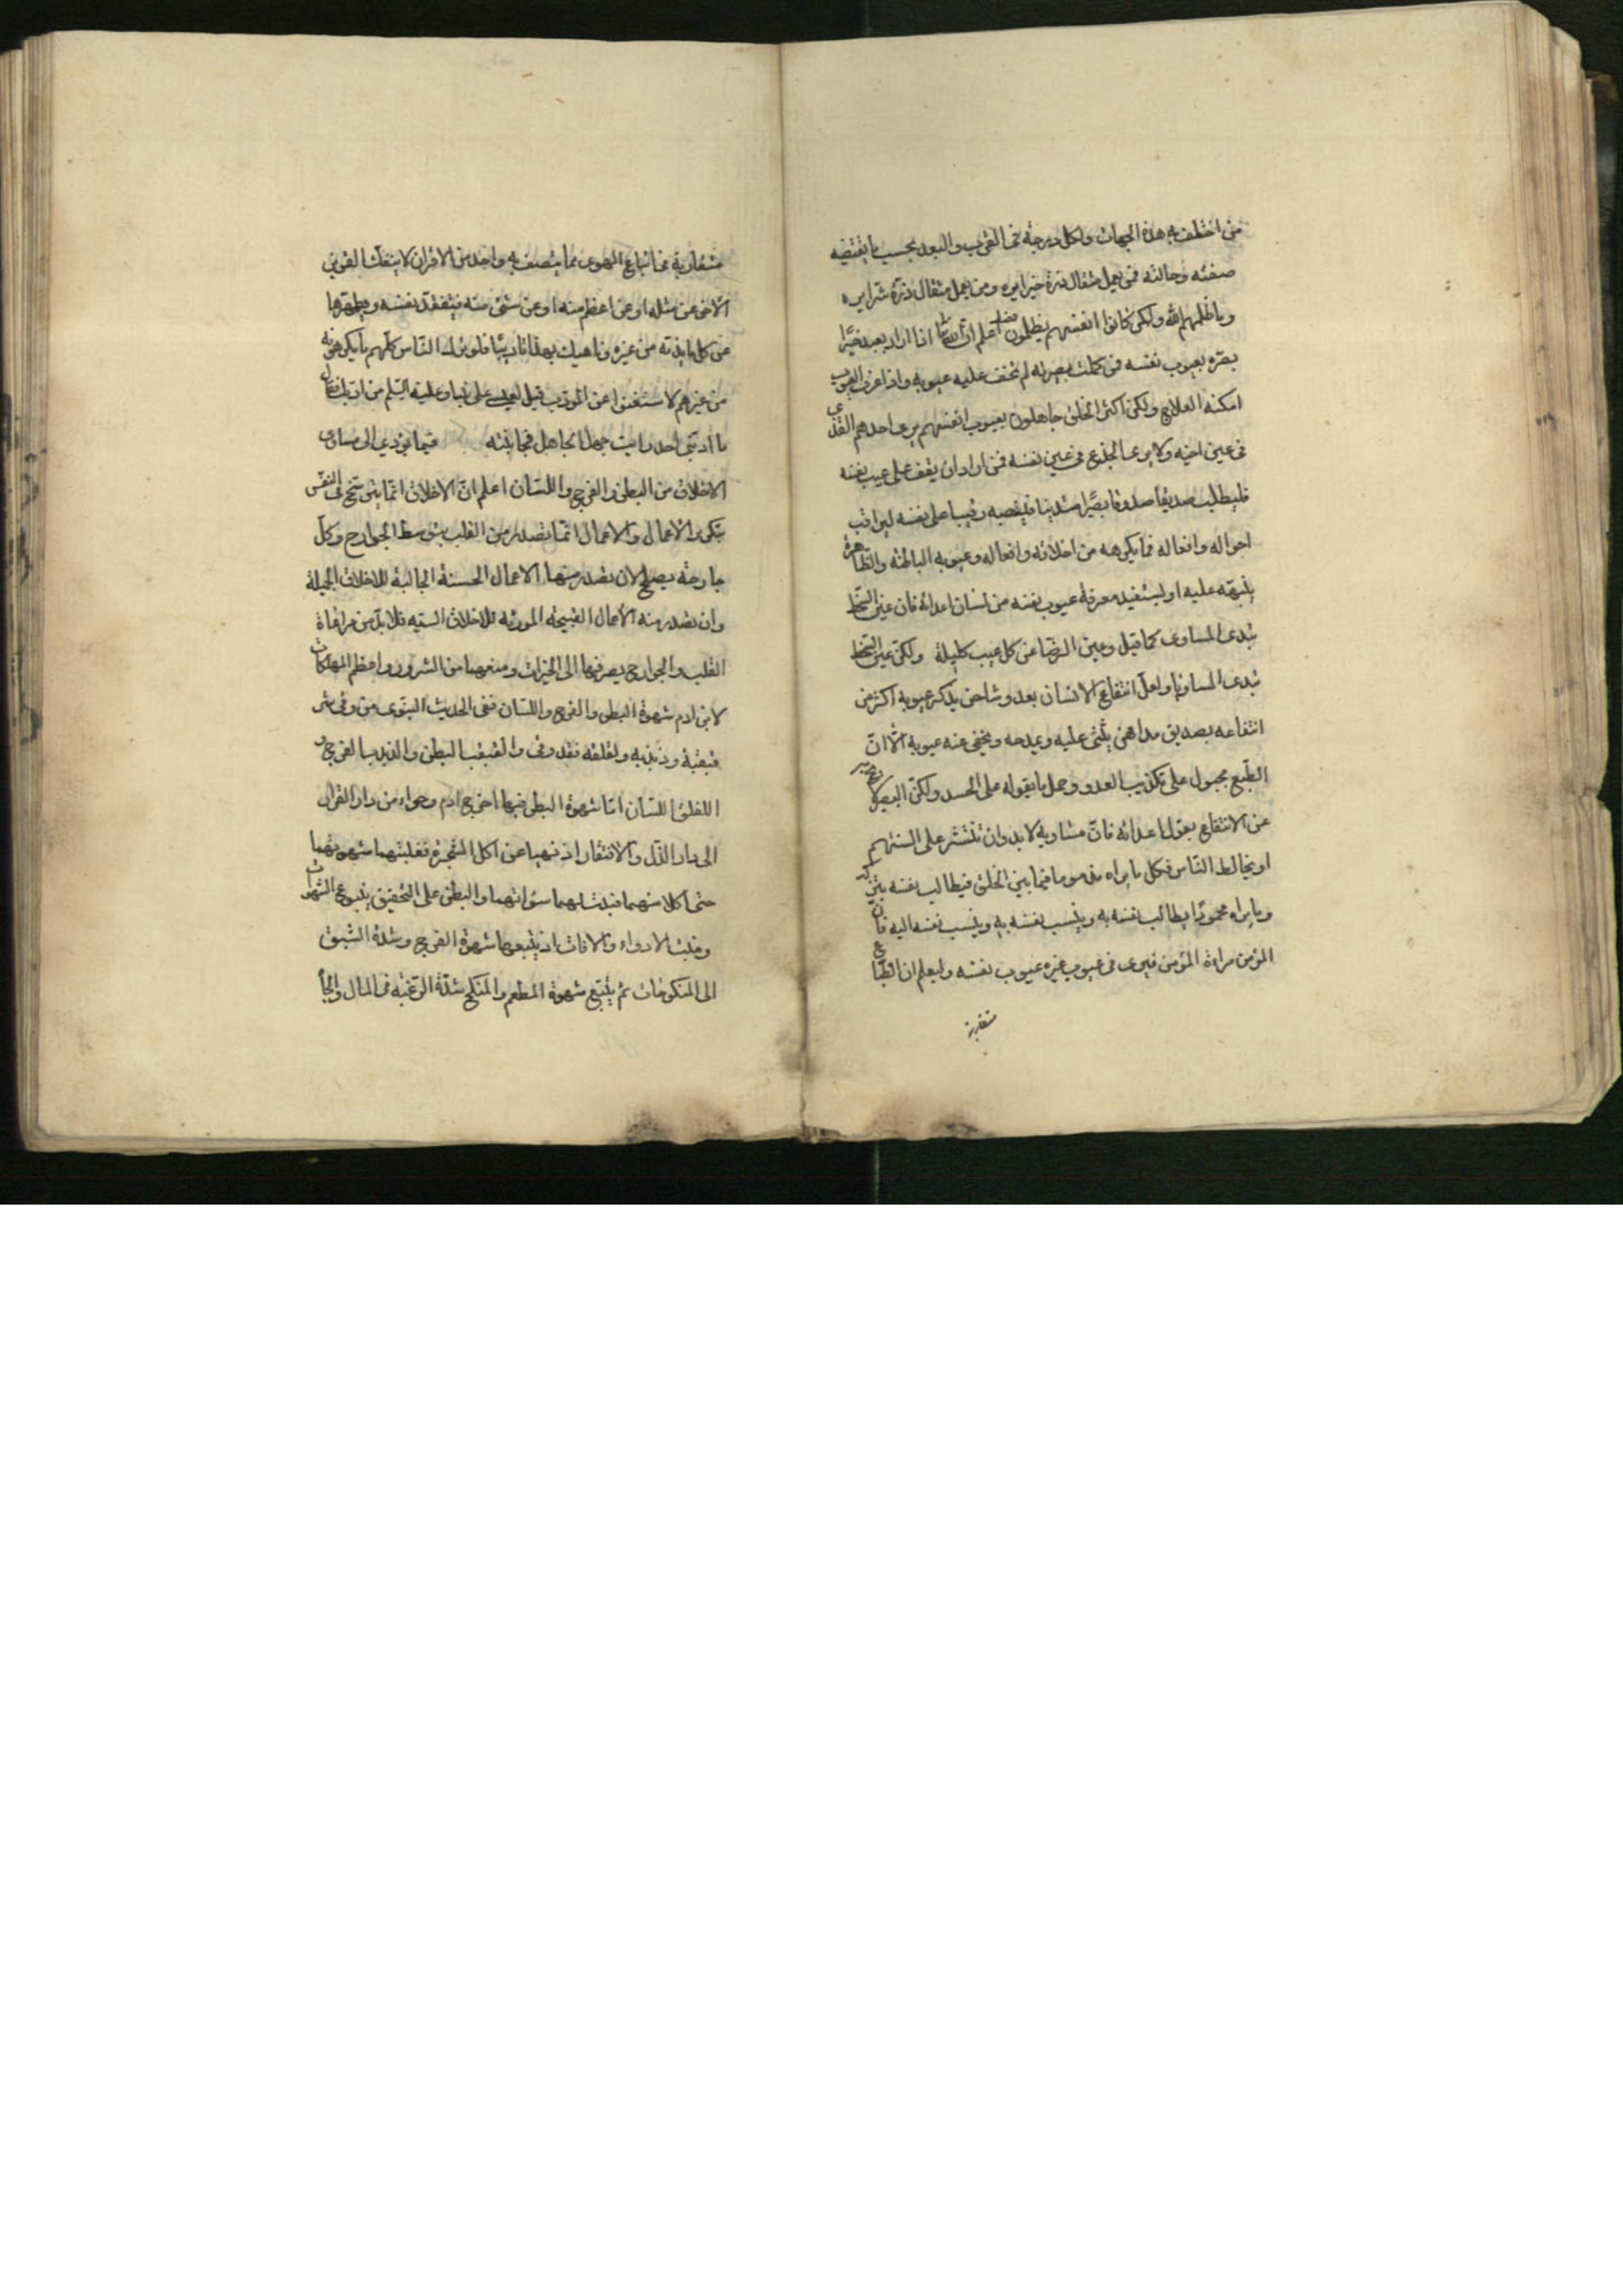 من اختطف به هذه الجهات ولكل درجة في القرب والبعد بحسب ما يقتضيه
صفته وحالته فمن يعمل مثقال ذرة خيرا يره ومن يعمل مثقال ذرة شرا يره
وما ظلمهم الله ولكن كانوا انفسهم يظلمون فصل اعلم ان الله تعالى اذا اراد بعبد خيرًا
بصّره بعيوب نفسه فمن كملت بصيرته لم تخف عليه عيوبه واذا عرف العيوب
امكنه العلاج ولكن اكثر الخلق جاهلون بعيوب انفسهم يرى احدهم القذى
في عين اخيه ولا يرى الجذع في عين نفسه فمن اراد ان يقف على عيب نفسه
فليطلب صديقا صدوقا بصيرًا متدينا فينصبه رقيبا على نفسه ليراقب
احواله وافعاله فما يكرهه من اخلاقه وافعاله وعيوبه الباطنة والظاهرة
ينبهّه عليه او ليستفيد معرفة عيوب نفسه من لسان اعدائه فان عين السّخط
تبدى المساوى كما قيل وعين الرضا عن كل عيب كليلة ولكن عين السّخط
تبدى المساويا ولعلّ انتفاع الانسان بعدو شاحن يذكر عيوبه اكثر من
انتفاعه بصديق مداهن يثنى عليه ويمدحه ويخفى عنه عيوبه الا انّ
الطّبع مجبول على تكذيب العدو وحمل ما يقوله على الحسد ولكنّ البصير لا يخ
عن الانتفاع بقول اعدائه فانّ مساويه لا بد وان تنتشر على السنتهم
او يخالط الناس فكل ما يراه مذموما فيما بين الخلق فيطالب نفسه بتركه
وما يراه محمودًا يطالب نفسه به وينسب نفسه به وينسب نفسه اليه فان
المؤمن مراءة المؤمن فيرى في عيوب غيره عيوب نفسه وليعلم ان الطّباع
متقاربة
متقاربة في اتباع الهوى فما يتصف به واحد من الاقران لا ينفك القرين
الآخر عن مثله او عن اعظم منه او عن شئ منه فيتفقد نفسه ويطهّرها
عن كل ما يذمّه من غيره وناهيك بهذا تاديبًا فلو ترك النّاس كلّهم ما يكرهونه
من غيرهم لاستغنوا عن المؤدّب قيل لعيسى على نبينا وعليه السّلم من ادّبك فقال
ما ادّبني احد رايت جهل الجاهل فجانبته فيما يؤدي الى مساوى
الاخلاق من البطن والفرج واللسان اعلم انّ الاخلاق انّما يترشح في النفس
بتكرر الاعمال والاعمال انّما تصدر من القلب بتوسط الجوارح وكلّ
جارحة يصلح لان تصدر منها الاعمال الحسنة الجالبة للاخلاق الجميلة
وان تصدر منه الاعمال القبيحة المورثة للاخلاق السيّه فلا بدّ من مراعاة
القلب والجوارح بصرفها الى الخيرات ومنعهما من الشرور واعظم المهلكات
لابن ادم شهوة البطن والفرج واللسان ففى الحديث النبّوى من وقى شر
قبقبه وذبذبه ولقلقه فقد وقى والقبقب البطن والذبذب الفرج و
اللقلق اللسان امّا شهوة البطن فبها اخرج ادم وحواء من دار القرار
الى دار الذّل والافتقار اذ نهيا عن اكل الشجرة فغلبتهما شهوتهما
حتى اكلا منها فبدت لهما سوّاتهما والبطن على التحقيق ينبوع الشهوات
ومنبت الادواء والافات اذ يتبعها شهوة الفرج وشدة الشبق
الى المنكوحات ثم يتبع شهوة المطعم والمنكح شدّة الرّغبة في المال والجا